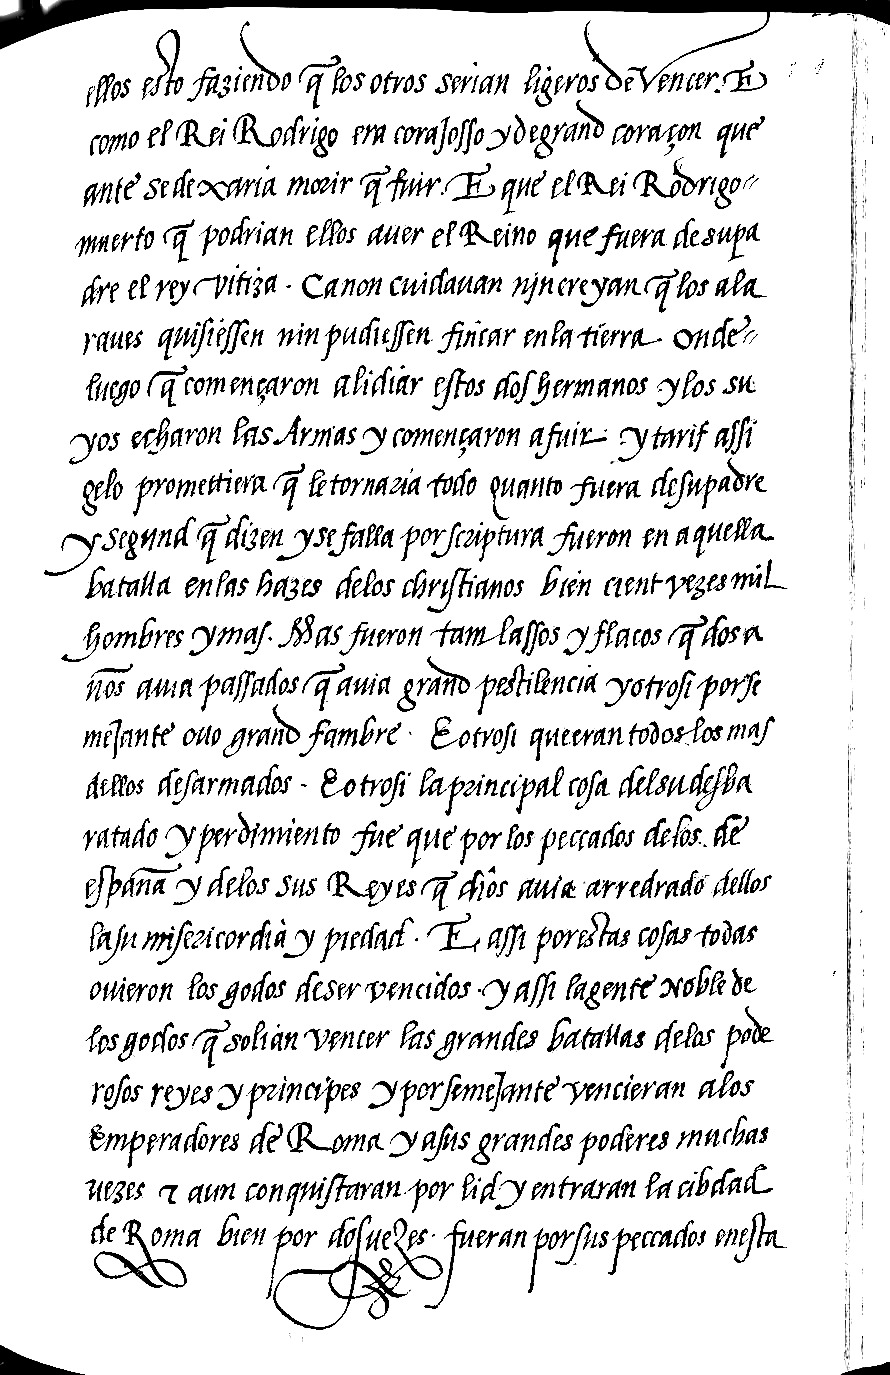 ellos esto faziendo q̃ los otros serian ligeros de vencer. E
como el Rei Rodrigo era corajosso y de grand coraçon que
ante se dexaria morir q̃ fuir. E que el Rei Rodrigo
muerto q̃ podrian ellos auer el Reino que fuera de su pa
dre el rey vitiza. Ca non cuidauan nin creyan q̃ los ala
raues quisiessen nin pudiessen fincar en la tierra. Onde
luego q̃ començaron a lidiar estos dos hermanos y los su
yos echaron las Armas y començaron a fuir. y tarif assi
gelo promettiera q̃ le tornaria todo quanto fuera de su padre
y segund q̃ dizen y se falla por scriptura fueron en aquella
batalla en las hazes de los christianos bien cient vezes mil
hombres y mas. Mas fueron tam lassos y flacos q̃ dos a
ños auia passados q̃ auia grand pestilencia y otrosi por se
mejante ouo grand fambre. E otrosi que eran todos los mas
dellos desarmados. E otrosi la principal cosa del su desba
ratado y perdimiento fue que por los peccados de los de
españa y de los sus Reyes q̃ dios auia arredrado dellos
la su misericordia y piedad. E assi por estas cosas todas
ouieron los godos de ser vencidos. y assi la gente noble de
los godos q̃ solian vencer las grandes batallas de los pode
rosos reyes y principes y por semejante vencieran a los
Emperadores de Roma y a sus grandes poderes muchas
uezes τ aun conquistaran por lid y entraran la cibdad
de Roma bien por dos uezes. fueran por sus peccados en esta